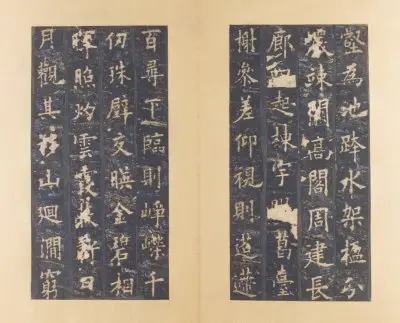 壑為池跨水架楹分
巖竦闕高閣周建長
廊四起棟宇葛臺
榭參差仰視則迢遰
百尋下臨則崢嶸千
仞珠壁交暎金碧相
暉照灼雲霞蔽虧日
月觀其移山迴澗窮